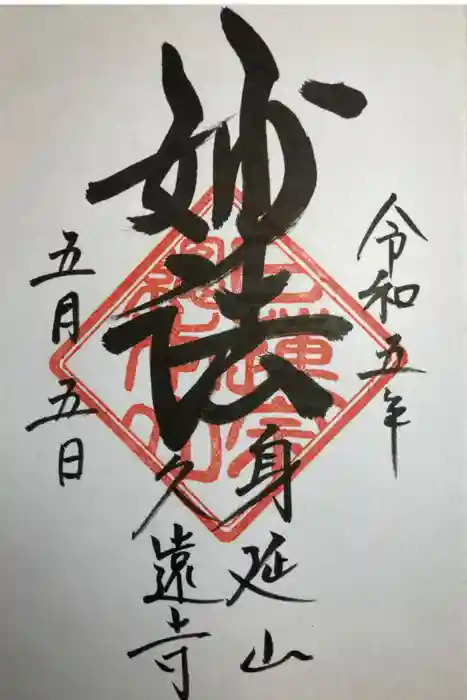 令和五年
妙法
身延山
久遠寺
五月五日